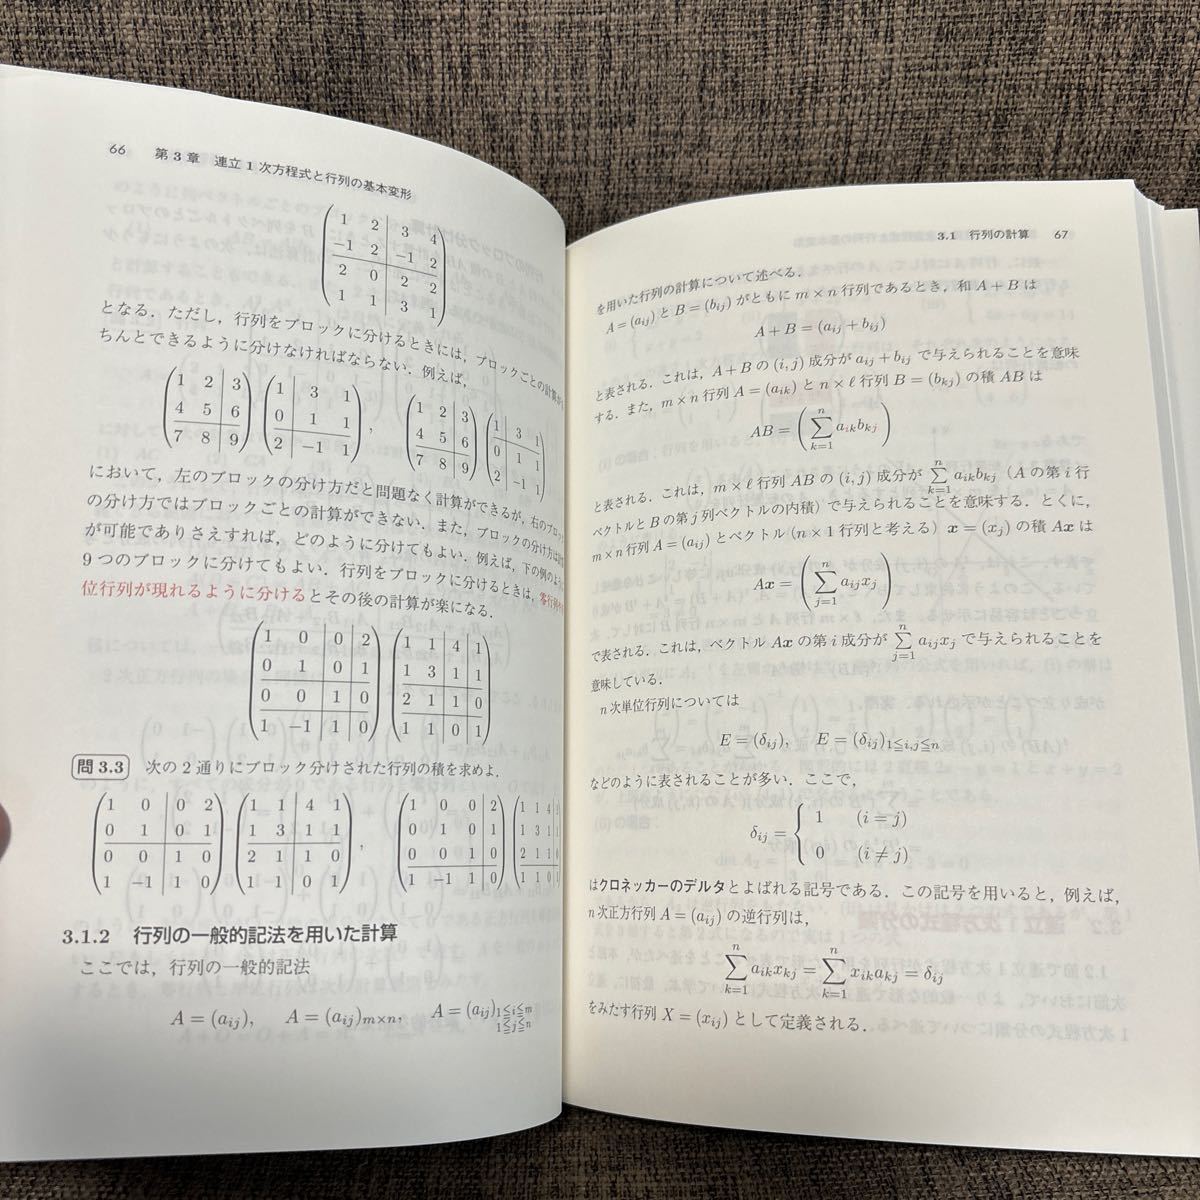 66 第3章 連立1次方程式と行列の基本変形
1 2 3 4
−1 2 −1 2
2 0 2 2
1 1 3 1
となる．ただし，行列をブロックに分けるときには，ブロックごとの計算が
ちんとできるように分けなければならない．例えば，
(1 2 3 (1 3 1 (1 2 3 (1 3 1
4 5 6 0 1 1 4 5 6 0 1 1
7 8 9) 2 −1 1), 7 8 9) 2 −1 1)
において，左のブロックの分け方だと問題なく計算ができるが，右のブロッ
の分け方ではブロックごとの計算ができない．また，ブロックの分け方は
が可能でありさえすれば，どのように分けてもよい．例えば，下の例のよう
9つのブロックに分けてもよい．行列をブロックに分けるときは，零行列や
位行列が現れるように分けるとその後の計算が楽になる．
(1 0 0 2 (1 1 4 1
0 1 0 1 1 3 1 1
0 0 1 0 2 1 1 0
1 −1 1 0) 1 1 0 1)
問 3.3 次の2通りにブロック分けされた行列の積を求めよ．
(1 0 0 2 (1 1 4 1 (1 0 0 2 (1 1 4 1
0 1 0 1 1 3 1 1 0 1 0 1 1 3 1 1
0 0 1 0 2 1 1 0 0 0 1 0 2 1 1 0
1 −1 1 0) 1 1 0 1), 1 −1 1 0) 1 1 0 1
3.1.2 行列の一般的記法を用いた計算
ここでは，行列の一般的記法
A = (aij), A = (aij)m×n, A = (aij)1≦i≦m 1≦j≦n
3.1 行列の計算 67
を用いた行列の計算について述べる．
A = (aij) と B = (bij) がともに m × n 行列であるとき，和 A + B は
A + B = (aij + bij)
と表される．これは，A + B の (i, j) 成分が aij + bij で与えられることを意味
する．また，m × n 行列 A = (aik) と n × ℓ 行列 B = (bkj) の積 AB は
AB = (∑k=1n aikbkj)
と表される．これは，m × ℓ 行列 AB の (i, j) 成分が ∑k=1n aikbkj（A の第 i 行
ベクトルと B の第 j 列ベクトルの内積）で与えられることを意味する．とくに，
m × n 行列 A = (aij) とベクトル（n × 1 行列と考える）x = (xj) の積 Ax は
Ax = (∑j=1n aijxj)
で表される．これは，ベクトル Ax の第 i 成分が ∑j=1n aijxj で与えられることを
意味している．
n 次単位行列については
E = (δij), E = (δij)1≦i,j≦n
などのように表されることが多い．ここで，
δij = { 1 (i = j)
0 (i ≠ j)
はクロネッカーのデルタとよばれる記号である．この記号を用いると，例えば，
n 次正方行列 A = (aij) の逆行列は，
∑k=1n aikxkj = ∑k=1n xikakj = δij
をみたす行列 X = (xij) として定義される．